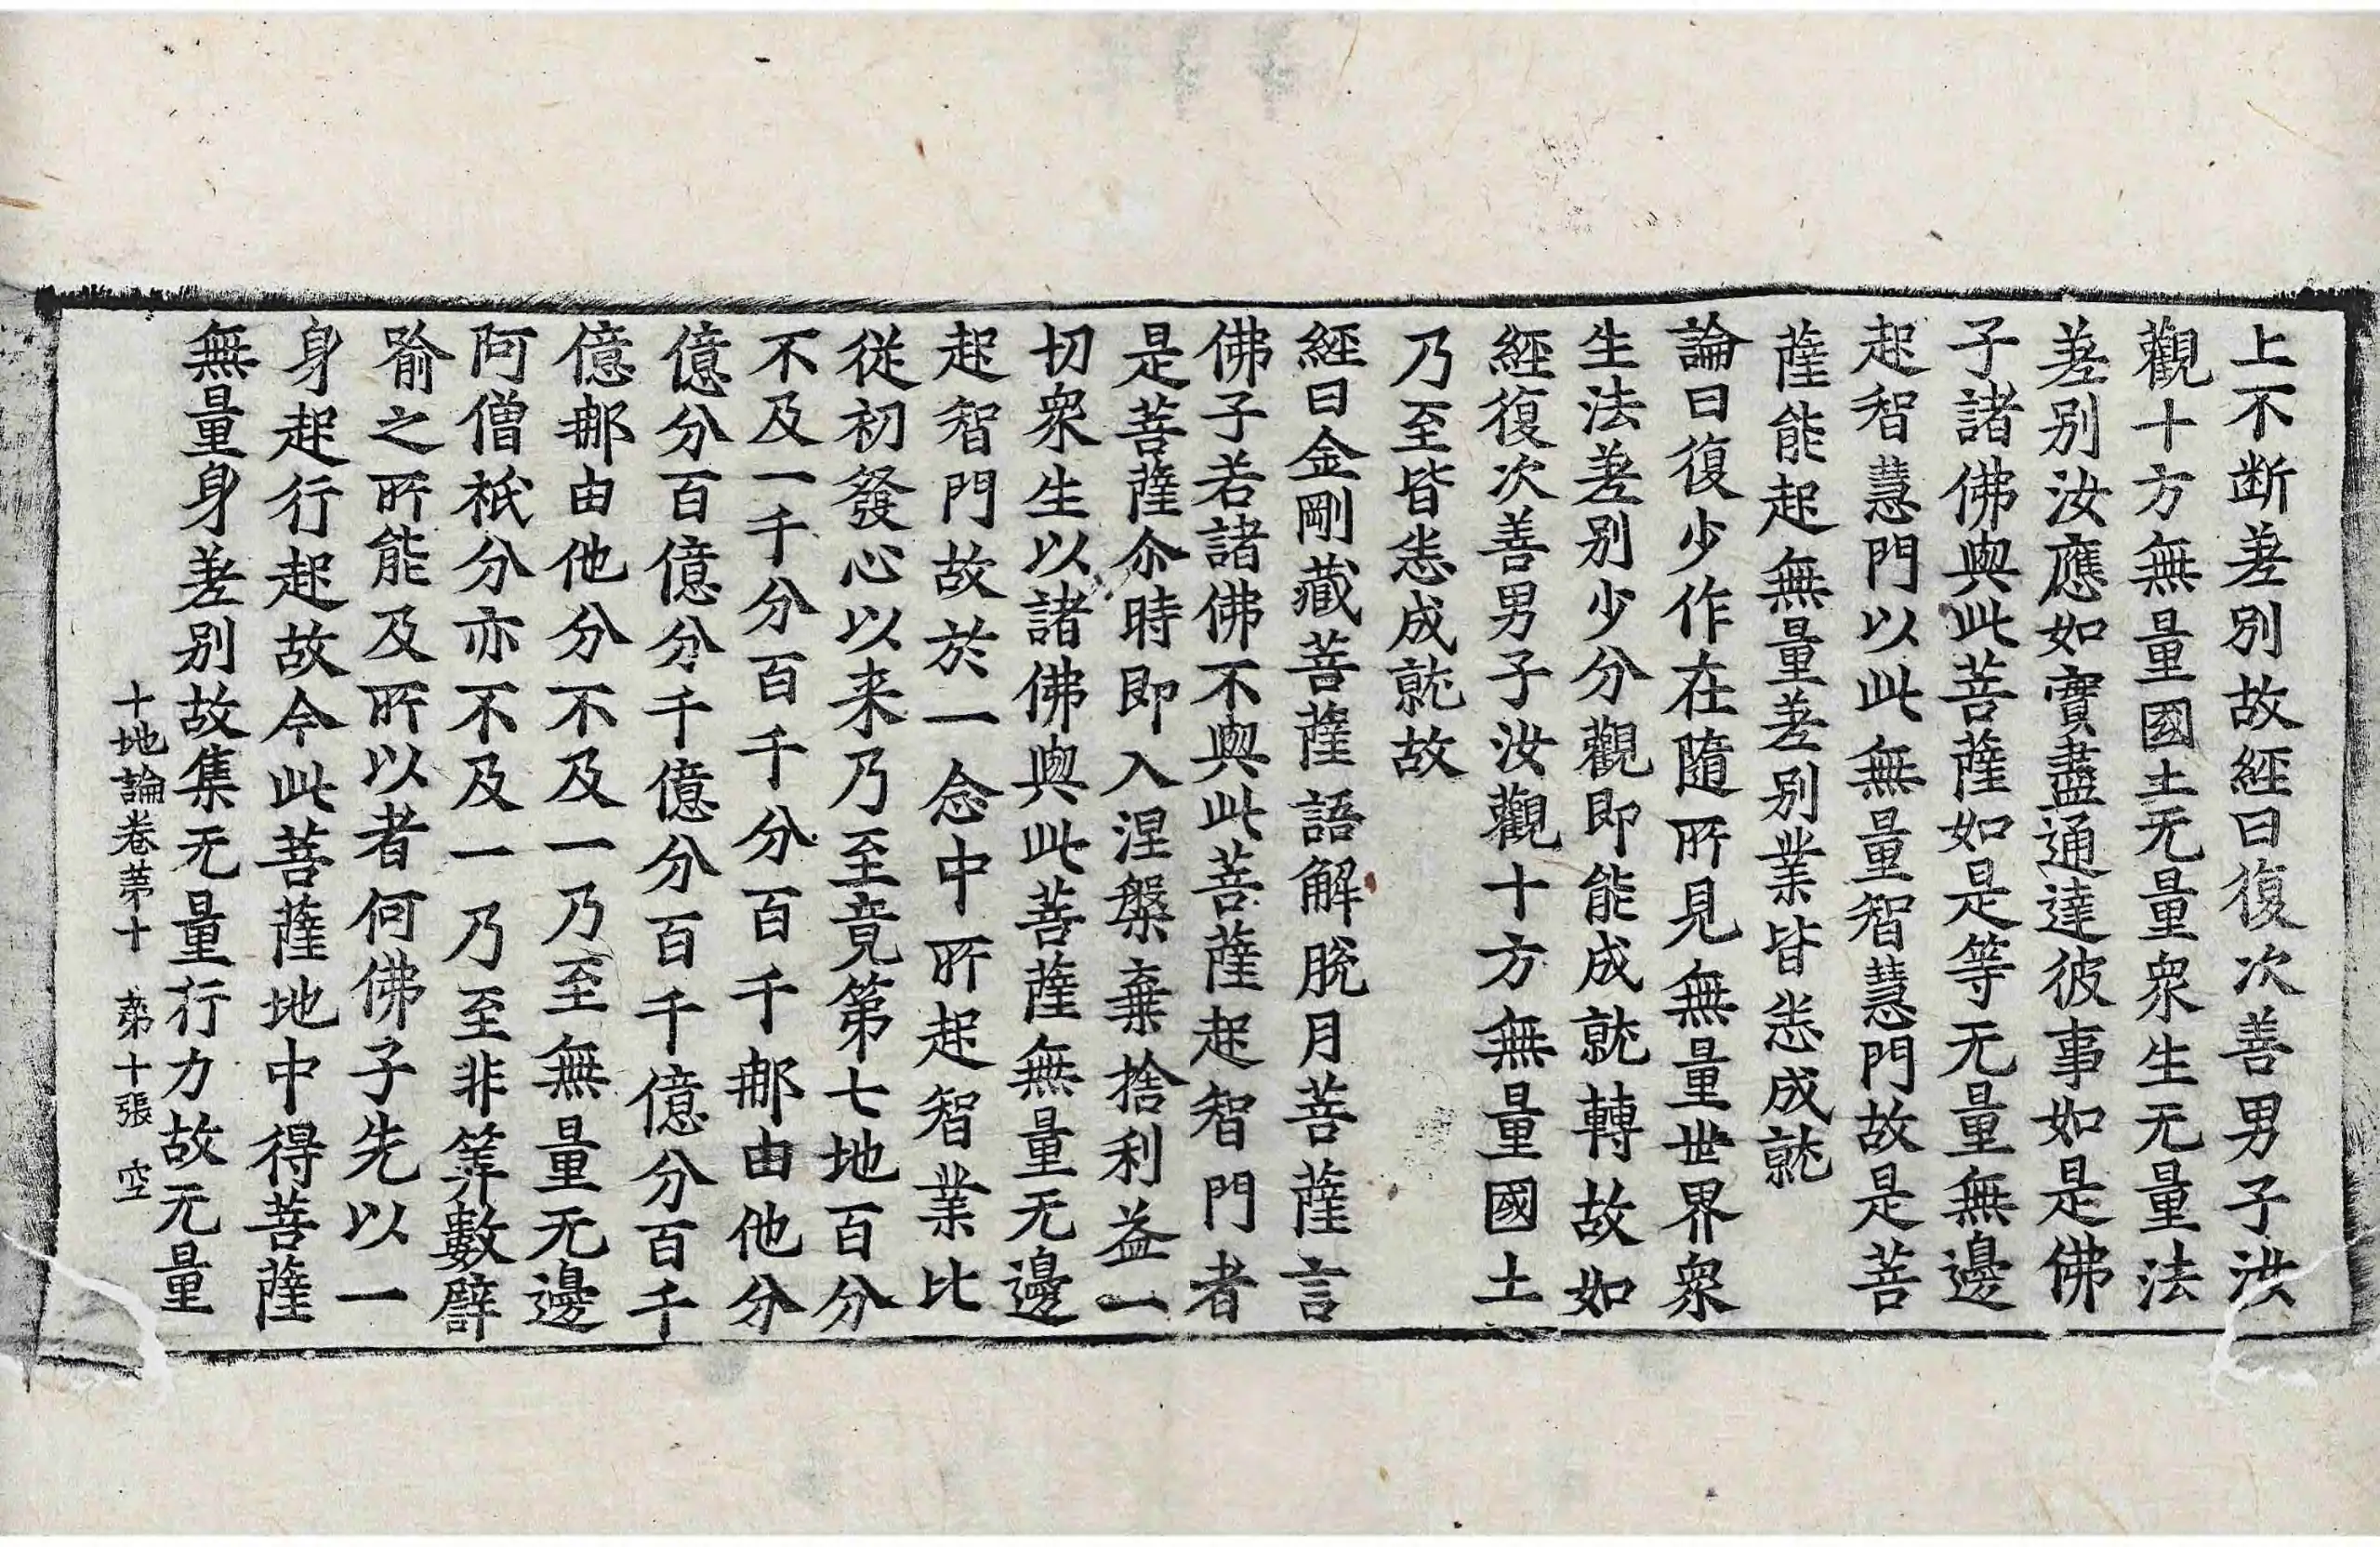 上不断差別故經曰復次善男子汝
觀十方無量國土无量眾生无量法
差別汝應如實盡通達彼事如是佛
子諸佛與此菩薩如是等无量無邊
起智慧門以此無量智慧門故是菩
薩能起無量差別業皆悉成就
論曰復少作在隨所見無量世界眾
生法差別少分觀即能成就轉故如
經復次善男子汝觀十方無量國土
乃至皆悉成就故
經曰金剛藏菩薩語解脫月菩薩言
佛子若諸佛不與此菩薩起智門者
是菩薩尒時即入涅槃棄捨利益一
切眾生以諸佛與此菩薩無量无邊
起智門故於一念中所起智業比
從初發心以来乃至竟第七地百分
不及一千分百千分百千那由他分
億分百億分千億分百千億分百千
億那由他分不及一乃至無量无邊
阿僧祇分亦不及一乃至非筭數譬
喻之所能及所以者何佛子先以一
身起行起故今此菩薩地中得菩薩
無量身差別故集无量行力故无量
十地論卷苐十 苐十張 空